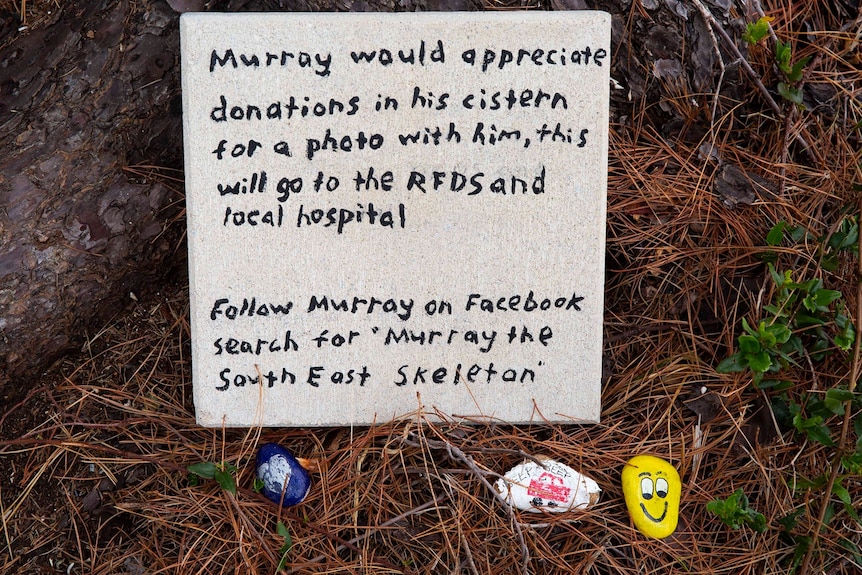 Murray would appreciate
donations in his cistern
for a photo with him, this
will go to the RFDS and
local hospital
Follow Murray on Facebook
search for "Murray the
South East Skeleton"